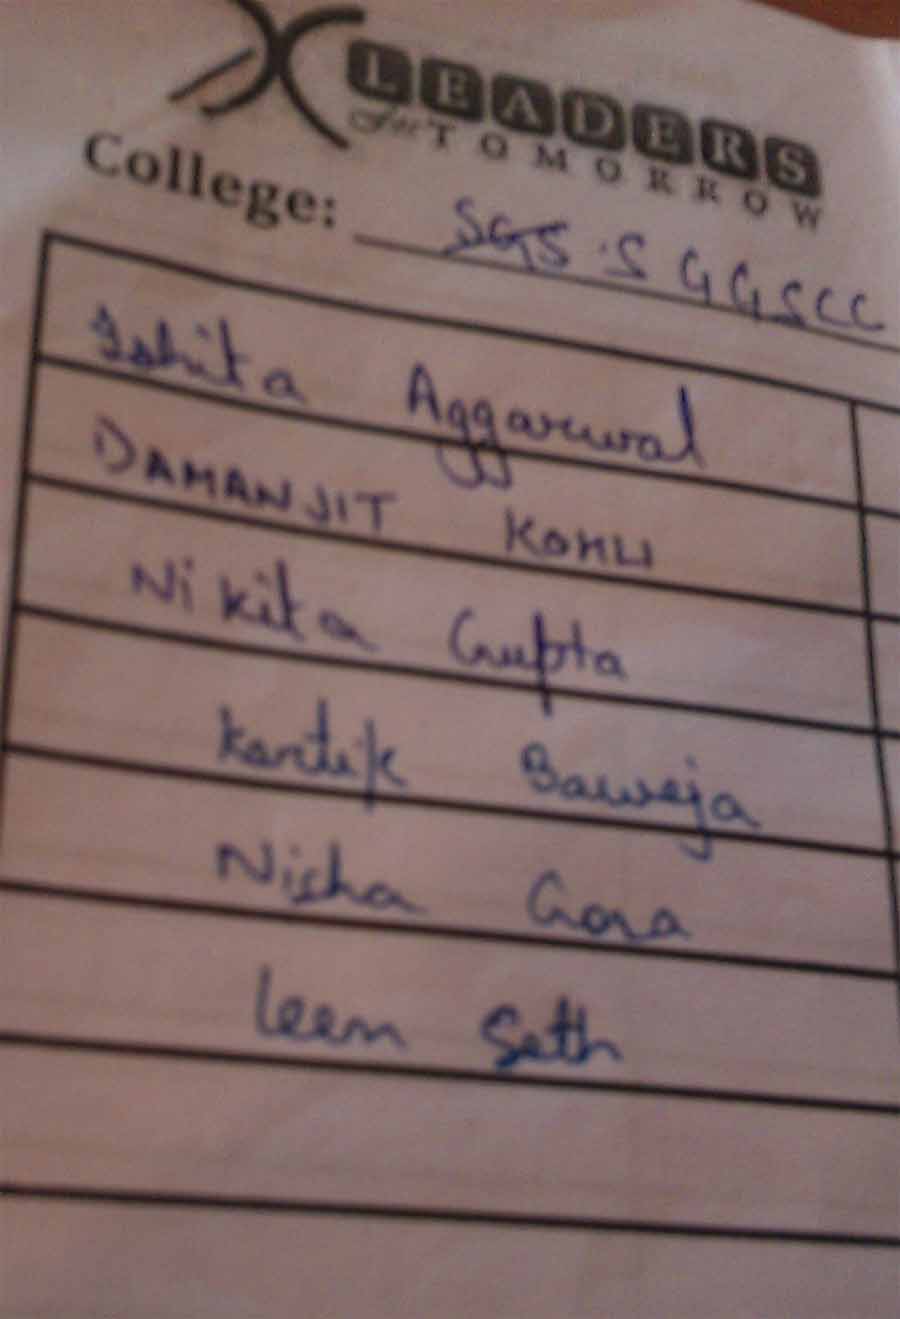 X LEADERS
For TOMORROW
College: SGS.S G G S C C
Ishita Aggarwal
DAMANJIT KOHLI
Nikita Gupta
Kartik Baweja
Nisha Gora
Leem Seth